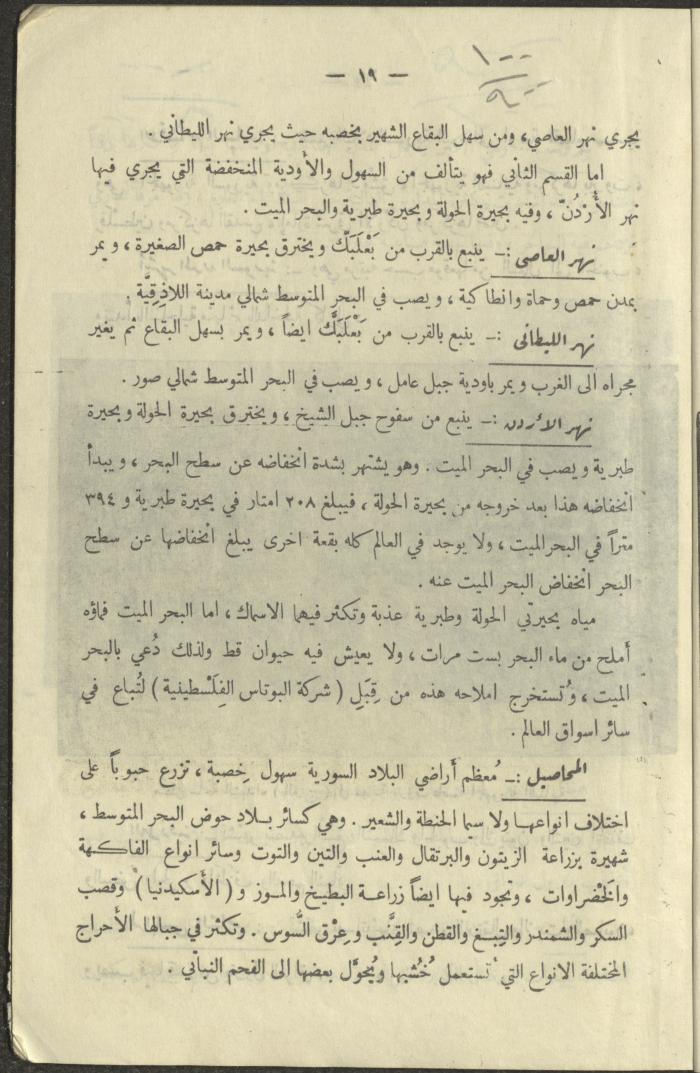 — ١٩ —
يجري نهر العاصي، ومن سهل البقاع الشهير بخصبه حيث يجري نهر الليطاني .
اما القسم الثاني فهو يتألف من السهول والأودية المنخفضة التي يجري فيها
نهر الأُرْدُنّ ، وفيه بحيرة الحولة وبحيرة طبرية والبحر الميت .
نهر العاصي :ـ ينبع بالقرب من بَعْلَبَكّ ويخترق بحيرة حمص الصغيرة ، ويمر
بمدن حمص وحماة وانطاكية ، ويصب في البحر المتوسط شمالي مدينة اللاذِقِيَّة .
نهر الليطانى :ـ ينبع بالقرب من بَعْلَبَكّ ايضاً ، ويمر بسهل البقاع ثم يغير
مجراه الى الغرب ويمر باودية جبل عامل ، ويصب في البحر المتوسط شمالي صور .
نهر الأردن :ـ ينبع من سفوح جبل الشيخ ، ويخترق بحيرة الحولة وبحيرة
طبرية ويصب في البحر الميت . وهو يشتهر بشدة انخفاضه عن سطح البحر ، ويبدأ
انخفاضه هذا بعد خروجه من بحيرة الحولة ، فيبلغ ٢٠٨ امتار في بحيرة طبرية و ٣٩٤
متراً في البحر الميت ، ولا يوجد في العالم كله بقعة اخرى يبلغ انخفاضها عن سطح
البحر انخفاض البحر الميت عنه .
مياه بحيرتي الحولة وطبرية عذبة وتكثر فيهما الاسماك ، اما البحر الميت فماؤه
أملح من ماء البحر بست مرات ، ولا يعيش فيه حيوان قط ولذلك دُعي بالبحر
الميت ، وتُستخرج املاحه هذه من قِبَلِ ( شركة البوتاس الفِلَسْطينية ) لتُباع في
سائر اسواق العالم .
المحاصيل :ـ مُعظم أراضي البلاد السورية سهول خِصبة ، تزرع حبوباً على
اختلاف انواعها ولا سيما الحنطة والشعير . وهي كسائر بلاد حوض البحر المتوسط ،
شهيرة بزراعة الزيتون والبرتقال والعنب والتين والتوت وسائر انواع الفاكهة
والخُضراوات ، وتجود فيها ايضاً زراعة البطيخ والموز و ( الأسكيدنيا ) وقصب
السكر والشمندر والتِبغ والقطن والقِنَّب وعِرْق السُّوس . وتكثر في جبالها الأحراج
المختلفة الانواع التي تستعمل خُشبها ويُحوَّل بعضها الى الفحم النباتي .